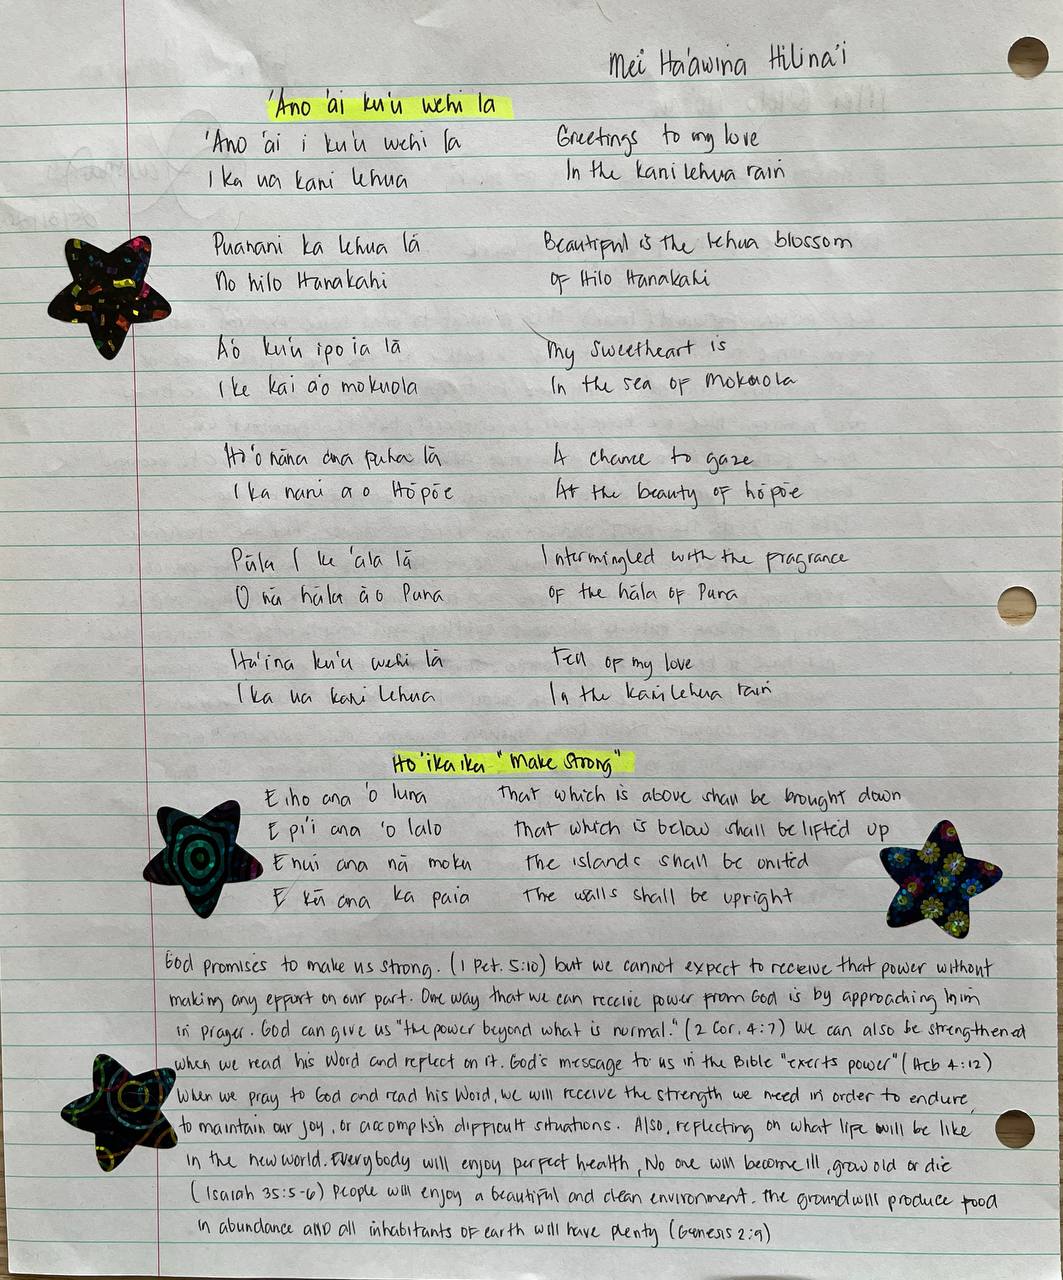 Mei Ha'awina Hilina'i
'Ano 'ai ku'u wehi la
'Ano 'ai i ku'u wehi la Greetings to my love
I ka ua kani lehua In the kani lehua rain
Puanani ka lehua lā Beautiful is the lehua blossom
No hilo Hanakahi of Hilo Hanakahi
A'o ku'u ipo ia lā My sweetheart is
I ke kai a'o mokuola In the sea of Mokuola
Ho'onāna ana puha lā A chance to gaze
I ka nani a o Hōpōe At the beauty of hōpōe
Pūla I ke 'ala lā Intermingled with the fragrance
O nā hāla ào Puna of the hāla of Puna
Ha'ina ku'u wehi lā Tell of my love
I ka ua kani lehua In the kani lehua rain
Ho'ikaika "Make Strong"
E iho ana 'o luna that which is above shall be brought down
E pi'i ana 'o lalo that which is below shall be lifted up
E hui ana nā moku the islands shall be united
E kū ana ka paia the walls shall be upright
God promises to make us strong. (1 Pet. 5:10) but we cannot expect to receive that power without
making any effort on our part. One way that we can receive power from God is by approaching him
in prayer. God can give us "the power beyond what is normal." (2 Cor. 4:7) We can also be strengthened
when we read his Word and reflect on it. God's message to us in the Bible "exerts power" (Heb 4:12)
When we pray to God and read his Word, we will receive the strength we need in order to endure,
to maintain our joy, or accomplish difficult situations. Also, reflecting on what life will be like
in the new world. Everybody will enjoy perfect health, No one will become ill, grow old or die
(Isaiah 35:5-6) People will enjoy a beautiful and clean environment. The ground will produce food
in abundance AND all inhabitants of earth will have plenty (Genesis 2:9)